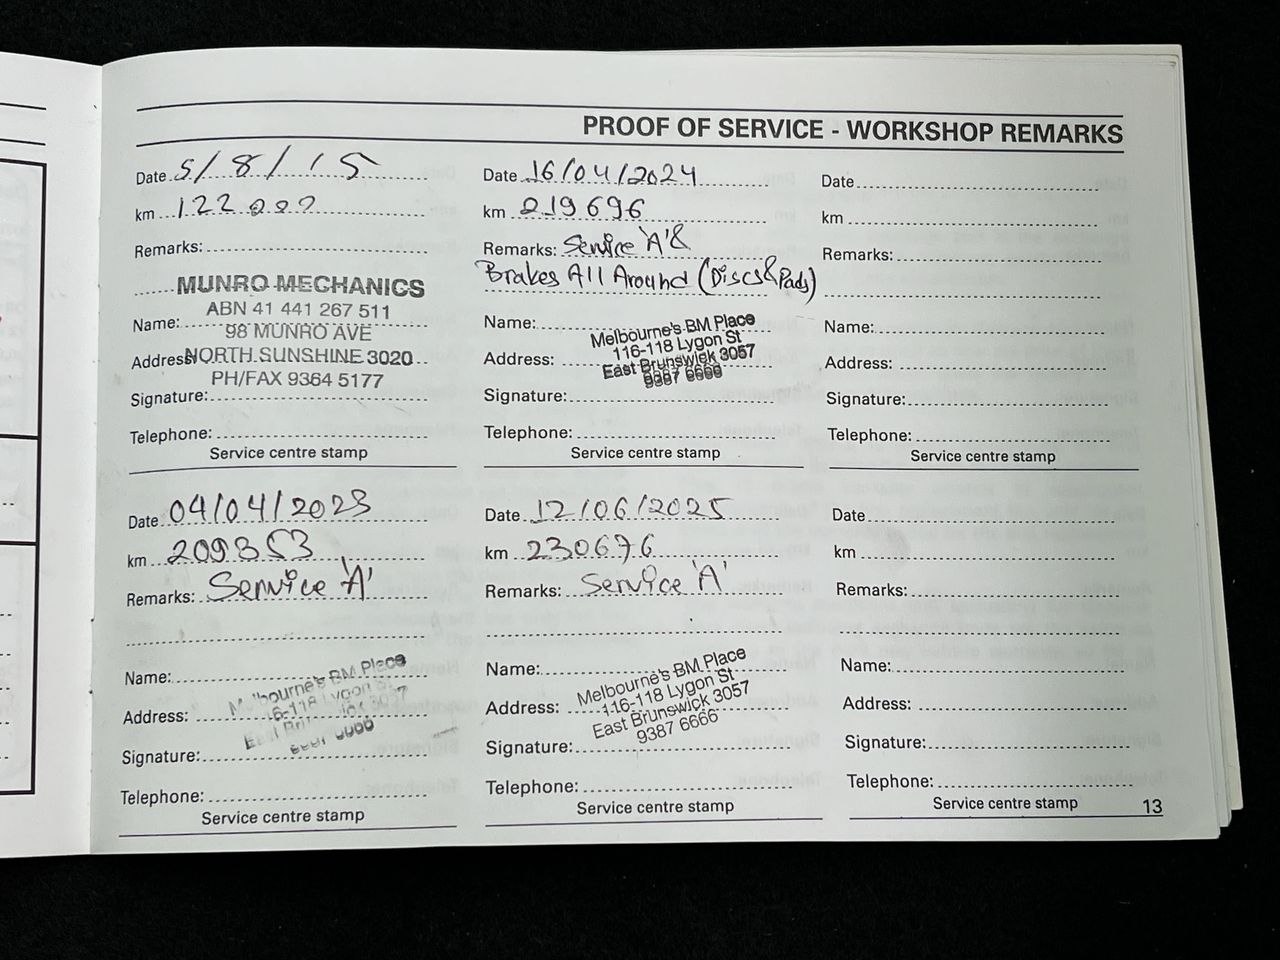 PROOF OF SERVICE - WORKSHOP REMARKS
Date 5/8/15
km 122000
Remarks:
MUNRO MECHANICS
ABN 41 441 267 511
Name: 98 MUNRO AVE
Address: NORTH SUNSHINE 3020
PH/FAX 9364 5177
Signature:
Telephone:
Service centre stamp
Date 04/04/2023
km 209353
Remarks: Service 'A'
Name: Melbourne's BM Place
Address: 116-118 Lygon St
East Brunswick 3057
Signature: 9387 6666
Telephone:
Service centre stamp
Date 16/04/2024
km 219696
Remarks: Service 'A' &
Brakes All Around (Discs & Pads)
Name: Melbourne's BM Place
116-118 Lygon St
Address: East Brunswick 3057
9387 6666
Signature:
Telephone:
Service centre stamp
Date 12/06/2025
km 230676
Remarks: Service 'A'
Name: Melbourne's BM Place
Address: 116-118 Lygon St
East Brunswick 3057
Signature: 9387 6666
Telephone:
Service centre stamp
Date
km
Remarks:
Name:
Address:
Signature:
Telephone:
Service centre stamp
Date
km
Remarks:
Name:
Address:
Signature:
Telephone:
Service centre stamp
13